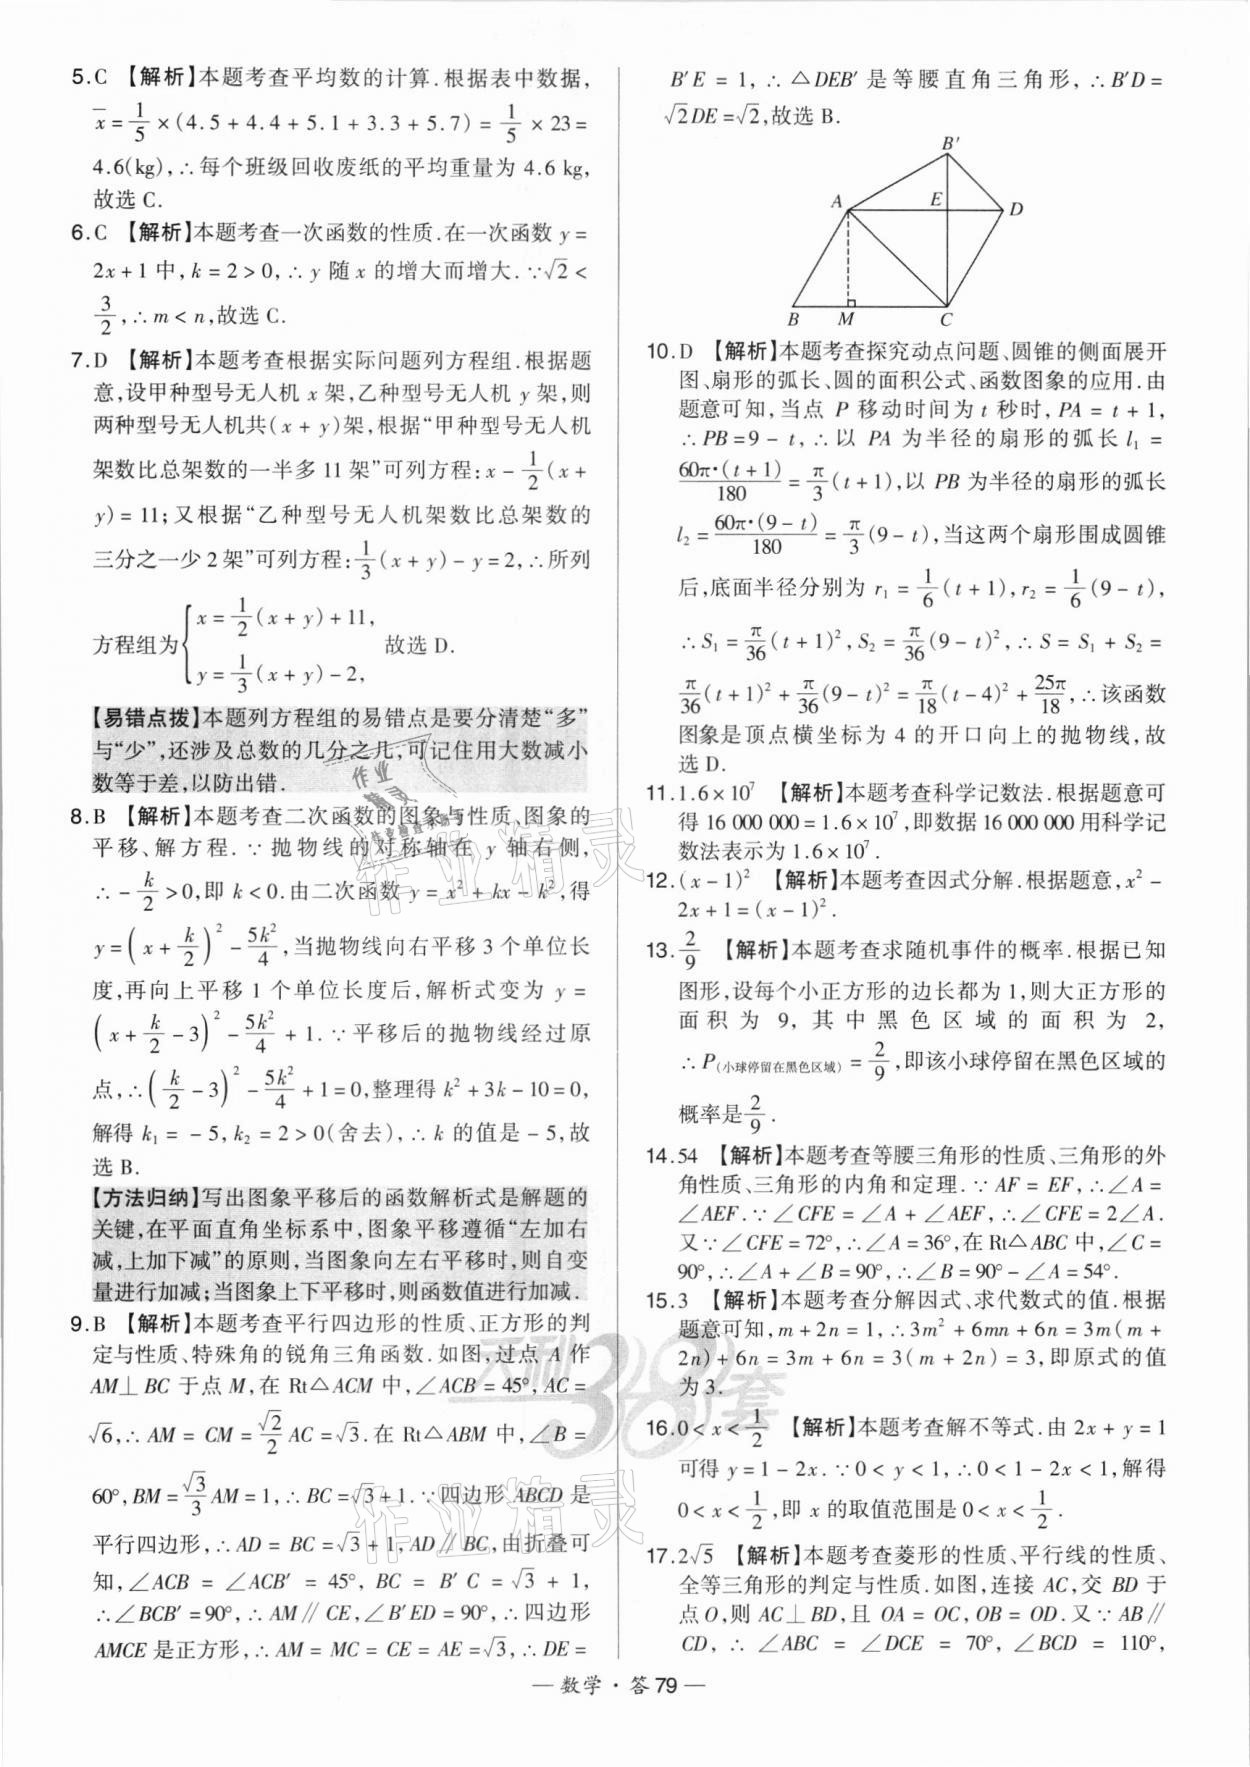 5. C 【解析】本题考查平均数的计算.根据表中数据,
x̄ = 1/5 ×(4.5+4.4+5.1+3.3+5.7) = 1/5 × 23 =
4.6(kg),∴每个班级回收废纸的平均重量为4.6 kg,
故选C.
6. C 【解析】本题考查一次函数的性质.在一次函数 y =
2x+1中,k=2>0,∴y随x的增大而增大.∵√2 <
3/2,∴m<n,故选C.
7. D 【解析】本题考查根据实际问题列方程组.根据题
意,设甲种型号无人机x架,乙种型号无人机y架,则
两种型号无人机共(x+y)架,根据“甲种型号无人机
架数比总架数的一半多11架”可列方程:x-1/2(x+
y)=11;又根据“乙种型号无人机架数比总架数的
三分之一少2架”可列方程:1/3(x+y)-y=2,∴所列
方程组为{x=1/2(x+y)+11, y=1/3(x+y)-2, 故选D.
【易错点拨】本题列方程组的易错点是要分清楚“多”
与“少”,还涉及总数的几分之几,可记住用大数减小
数等于差,以防出错.
8. B 【解析】本题考查二次函数的图象与性质、图象的
平移、解方程.∵抛物线的对称轴在y轴右侧,
∴-k/2>0,即k<0.由二次函数y=x²+kx-k²,得
y=(x+k/2)²-5k²/4,当抛物线向右平移3个单位长
度,再向上平移1个单位长度后,解析式变为y=
(x+k/2-3)²-5k²/4+1.∵平移后的抛物线经过原
点,∴(k/2-3)²-5k²/4+1=0,整理得k²+3k-10=0,
解得k₁=-5,k₂=2>0(舍去),∴k的值是-5,故
选B.
【方法归纳】写出图象平移后的函数解析式是解题的
关键,在平面直角坐标系中,图象平移遵循“左加右
减,上加下减”的原则,当图象向左右平移时,则自变
量进行加减;当图象上下平移时,则函数值进行加减.
9. B 【解析】本题考查平行四边形的性质、正方形的判
定与性质、特殊角的锐角三角函数.如图,过点A作
AM⊥BC于点M,在Rt△ACM中,∠ACB=45°,AC=
√6,∴AM=CM=√2/2 AC=√3.在Rt△ABM中,∠B=
60°,BM=√3/3 AM=1,∴BC=√3+1.∵四边形ABCD是
平行四边形,∴AD=BC=√3+1,AD∥BC,由折叠可
知,∠ACB=∠ACB′=45°,BC=B′C=√3+1,
∴∠BCB′=90°,∴AM∥CE,∠B′ED=90°,∴四边形
AMCE是正方形,∴AM=MC=CE=AE=√3,∴DE=
B′E=1,∴△DEB′是等腰直角三角形,∴B′D=
√2DE=√2,故选B.
B′
A
E
D
B
M
C
10. D 【解析】本题考查探究动点问题、圆锥的侧面展开
图、扇形的弧长、圆的面积公式、函数图象的应用.由
题意可知,当点P移动时间为t秒时,PA=t+1,
∴PB=9-t,∴以PA为半径的扇形的弧长l₁=
60π·(t+1)/180=π/3(t+1),以PB为半径的扇形的弧长
l₂=60π·(9-t)/180=π/3(9-t),当这两个扇形围成圆锥
后,底面半径分别为r₁=1/6(t+1),r₂=1/6(9-t),
∴S₁=π/36(t+1)²,S₂=π/36(9-t)²,∴S=S₁+S₂=
π/36(t+1)²+π/36(9-t)²=π/18(t-4)²+25π/18,∴该函数
图象是顶点横坐标为4的开口向上的抛物线,故
选D.
11. 1.6×10⁷ 【解析】本题考查科学记数法.根据题意可
得16 000 000=1.6×10⁷,即数据16 000 000用科学记
数法表示为1.6×10⁷.
12. (x-1)² 【解析】本题考查因式分解.根据题意,x²-
2x+1=(x-1)².
13. 2/9 【解析】本题考查求随机事件的概率.根据已知
图形,设每个小正方形的边长都为1,则大正方形的
面积为9,其中黑色区域的面积为2,
∴P(小球停留在黑色区域)=2/9,即该小球停留在黑色区域的
概率是2/9.
14. 54 【解析】本题考查等腰三角形的性质、三角形的外
角性质、三角形的内角和定理.∵AF=EF,∴∠A=
∠AEF.∵∠CFE=∠A+∠AEF,∴∠CFE=2∠A.
又∵∠CFE=72°,∴∠A=36°,在Rt△ABC中,∠C=
90°,∴∠A+∠B=90°,∴∠B=90°-∠A=54°.
15. 3 【解析】本题考查分解因式、求代数式的值.根据
题意可知,m+2n=1,∴3m²+6mn+6n=3m(m+
2n)+6n=3m+6n=3(m+2n)=3,即原式的值
为3.
16. 0<x<1/2 【解析】本题考查解不等式.由2x+y=1
可得y=1-2x.∵0<y<1,∴0<1-2x<1,解得
0<x<1/2,即x的取值范围是0<x<1/2.
17. 2√5 【解析】本题考查菱形的性质、平行线的性质、
全等三角形的判定与性质.如图,连接AC,交BD于
点O,则AC⊥BD,且OA=OC,OB=OD.又∵AB∥
CD,∴∠ABC=∠DCE=70°,∠BCD=110°,
— 数学·答79 —
作业精灵
天利38套
作业精灵